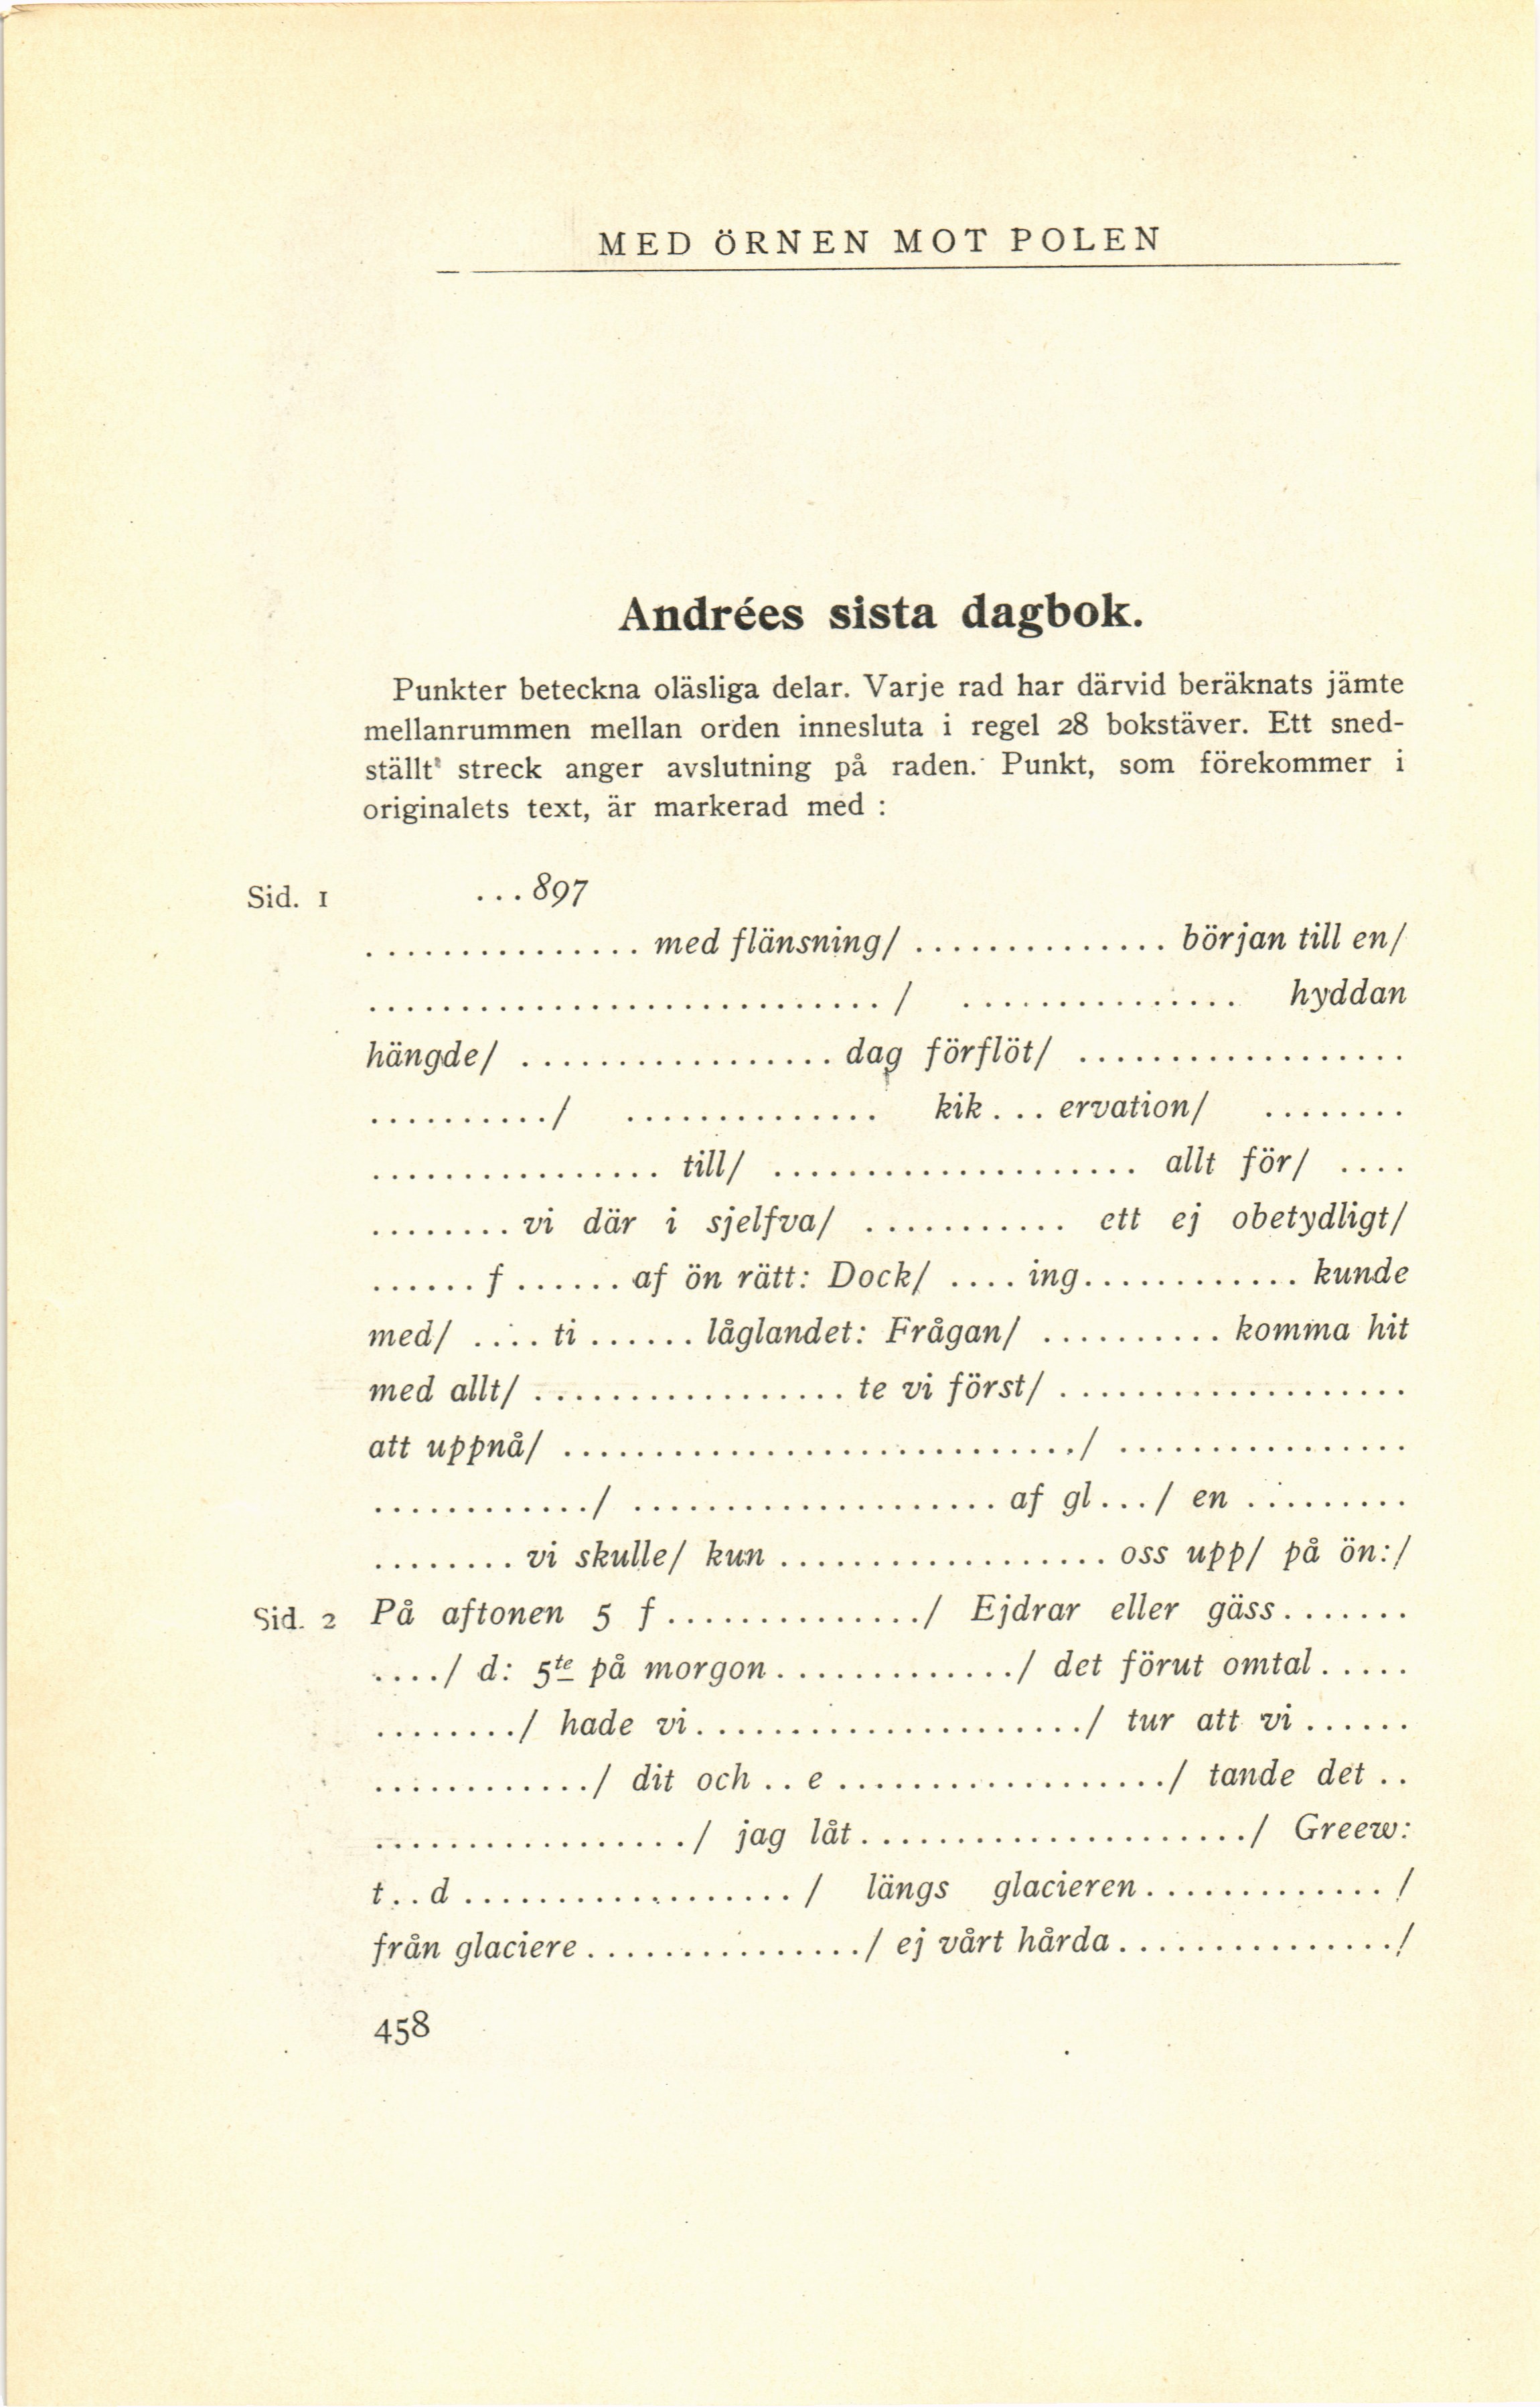 MED ÖRNEN MOT POLEN
Andrées sista dagbok.
Punkter beteckna oläsliga delar. Varje rad har därvid beräknats jämte
mellanrummen mellan orden innesluta i regel 28 bokstäver. Ett sned-
ställt streck anger avslutning på raden. Punkt, som förekommer i
originalets text, är markerad med :
Sid. 1 ...897
............... med flänsning/ .............. början till en/
............................/ ............... hyddan
hängde/ ................. dag förflöt/ ..................
........../ .............. kik... ervation/ ........
................ till/ .................... allt för/ ....
........ vi där i sjelfva/ ........... ett ej obetydligt/
...... f ...... af ön rätt: Dock/ .... ing............ kunde
med/ .... ti ...... låglandet: Frågan/ .......... komma hit
med allt/ ................. te vi först/ ...................
att uppnå/ ............................/ ................
............/ .................... af gl.../ en .........
........ vi skulle/ kun .................. oss upp/ på ön:/
Sid. 2 På aftonen 5 f ............../ Ejdrar eller gäss.......
..../ d: 5te på morgon............./ det förut omtal.....
......../ hade vi...................../ tur att vi......
............/ dit och .. e ................../ tande det ..
................./ jag låt...................../ Greew:
t..d ................../ längs glacieren............./
från glaciere .............../ ej vårt hårda .............../
458